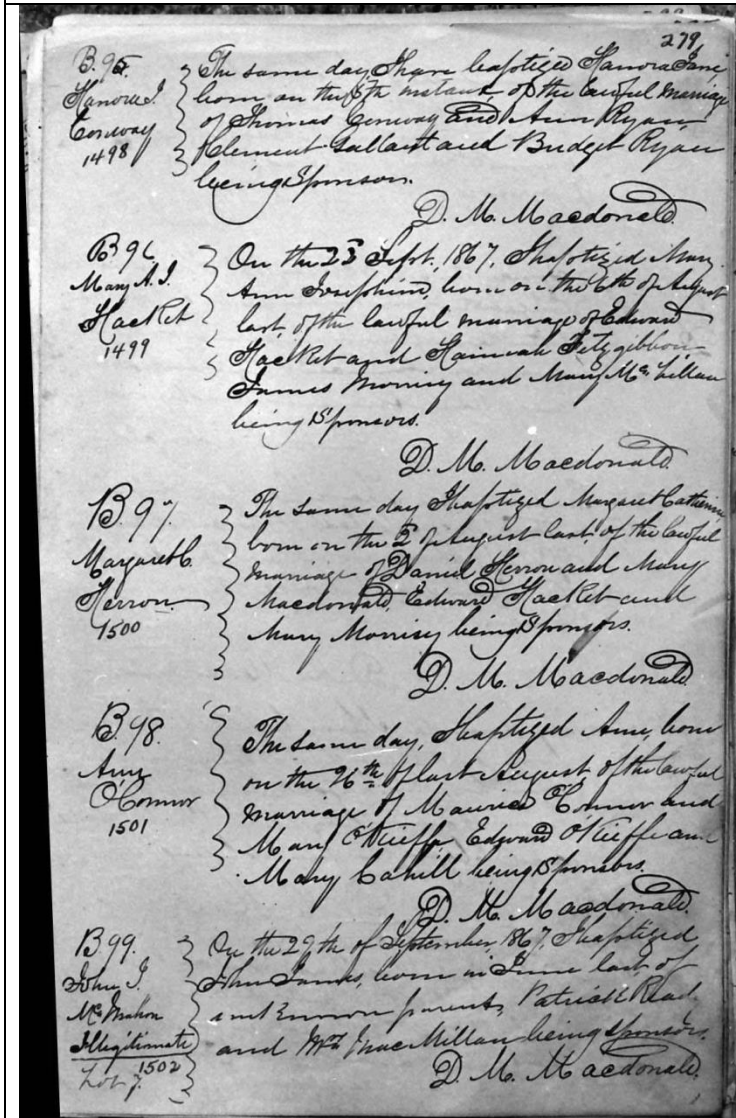 279
B. 95.
Hanora J.
Conway
1498
The same day I have baptized Hanora Jane,
born on the 8th instant of the lawful marriage
of Thomas Conway and Ann Ryan
Clement Gallant and Bridget Ryan
being Sponsors.
D. M. Macdonald.
B 96
Mary A. J.
Hacket
1499
On the 23 Sept. 1867, I baptized Mary
Ann Josephine, born on the 6th of August
last, of the lawful marriage of Edward
Hacket and Hannah Fitzgibbon
James Morrisy and Mary McLillan
being Sponsors.
D. M. Macdonald.
B. 97.
Margaret C.
Herron.
1500
The same day I baptized Margaret Catherine,
born on the 2 of August last, of the lawful
marriage of Daniel Herron and Mary
Macdonald, Edward Hacket and
Mary Morrisy being Sponsors.
D. M. Macdonald.
B. 98.
Ann
O'Connor
1501
The same day, I baptized Ann, born
on the 26th of last August of the lawful
marriage of Maurice O'Connor and
Mary O'Kieffe, Edward O'Kieffe and
Mary Cahill being Sponsors.
D. M. Macdonald.
B. 99.
John J.
McMahon
Illegitimate
1502
Lot 7.
On the 29th of September, 1867, I baptized
John James, born in June last, of
unknown parents, Patrick Read
and Mrs MacMillan being sponsors.
D. M. Macdonald.